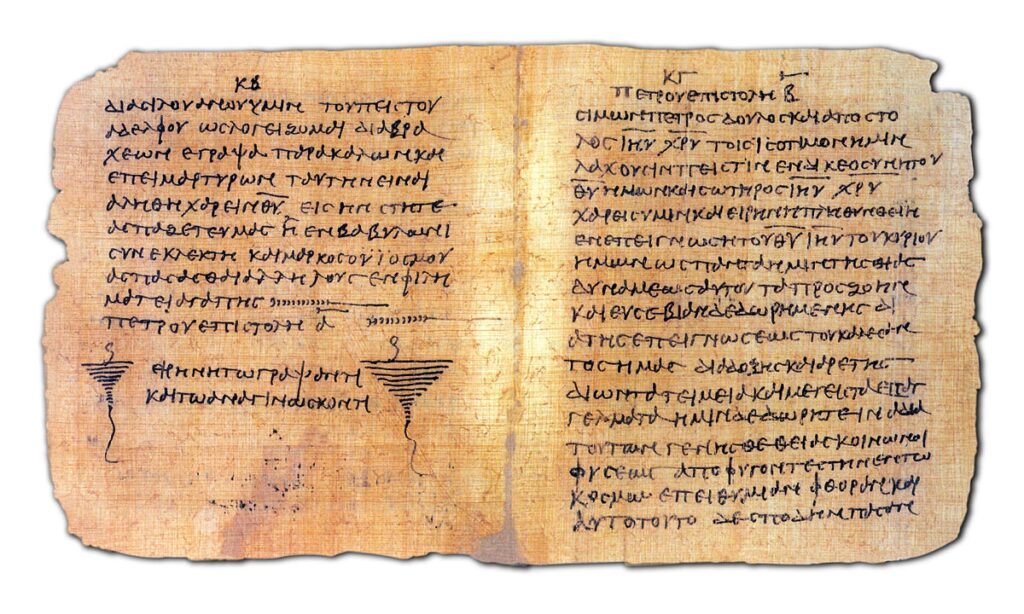 ΚΒ
ΔΙΑ ΣΙΛΟΥΑΝΟΥ ΥΜΙΝ ΤΟΥ ΠΙΣΤΟΥ
ΑΔΕΛΦΟΥ ΩΣ ΛΟΓΕΙΖΟΜΑΙ ΔΙΑ ΒΡΑ
ΧΕΩΝ ΕΓΡΑΨΑ ΠΑΡΑΚΑΛΩΝ ΚΑΙ
ΕΠΕΙΜΑΡΤΥΡΩΝ ΤΑΥΤΗΝ ΕΙΝΑΙ
ΑΛΗΘΗ ΧΑΡΕΙΝ ΘΥ ΕΙΣ ΗΝ ΣΤΗΤΕ
ΑΣΠΑΖΕΤΕ ΥΜΑΣ Η ΕΝ ΒΑΒΥΛΩΝΙ
ΣΥΝΕΚΛΕΚΤΗ ΚΑΙ ΜΑΡΚΟΣ Ο ΥΙΟΣ ΜΟΥ
ΑΣΠΑΣΑΣΘΑΙ ΑΛΛΗΛΟΥΣ ΕΝ ΦΙΛΗ
ΜΑΤΕΙ ΑΓΑΠΗΣ
ΠΕΤΡΟΥ ΕΠΙΣΤΟΛΗ Α
ΕΙΡΗΝΗ ΤΩ ΓΡΑΨΑΝΤΙ
ΚΑΙ ΤΩ ΑΝΑΓΙΝΩΣΚΟΝΤΙ
ΚΓ
ΠΕΤΡΟΥ ΕΠΙΣΤΟΛΗ Β
ΣΙΜΩΝ ΠΕΤΡΟΣ ΔΟΥΛΟΣ ΚΑΙ ΑΠΟΣΤΟ
ΛΟΣ ΙΗΥ ΧΡΥ ΤΟΙΣ ΙΣΟΤΙΜΟΝ ΗΜΙΝ
ΛΑΧΟΥΣΙΝ ΠΙΣΤΙΝ ΕΝ ΔΙΚΕΟΣΥΝΗ ΤΟΥ
ΘΥ ΗΜΩΝ ΚΑΙ ΣΩΤΗΡΟΣ ΙΗΥ ΧΡΥ
ΧΑΡΕΙΣ ΥΜΙΝ ΚΑΙ ΕΙΡΗΝΗ ΠΛΗΘΥΝΘΕΙΗ
ΕΝ ΕΠΕΙΓΝΩΣΗ ΤΟΥ ΘΥ ΙΗΥ ΤΟΥ ΚΥΡΙΟΥ
ΗΜΩΝ ΩΣ ΠΑΝΤΑ ΗΜΙΝ ΤΗΣ ΘΙΑΣ
ΔΥΝΑΜΕΩΣ ΑΥΤΟΥ ΤΑ ΠΡΟΣ ΖΩΗΝ
ΚΑΙ ΕΥΣΕΒΙΑΝ ΔΕΔΩΡΗΜΕΝΗΣ ΔΙ
Α ΤΗΣ ΕΠΕΙΓΝΩΣΕΩΣ ΤΟΥ ΚΑΛΕΣΑΝ
ΤΟΣ ΗΜΑΣ ΔΙΑ ΔΟΞΗΣ ΚΑΙ ΑΡΕΤΗΣ
ΔΙ ΩΝ ΤΑ ΤΕΙΜΕΙΑ ΚΑΙ ΜΕΓΕΙΣΤΑ ΕΠΑΓ
ΓΕΛΜΑΤΑ ΗΜΙΝ ΔΕΔΩΡΗΤΕ ΙΝΑ ΔΙΑ
ΤΟΥΤΩΝ ΓΕΝΗΣΘΕ ΘΕΙΑΣ ΚΟΙΝΩΝΟΙ
ΦΥΣΕΩΣ ΑΠΟΦΥΓΟΝΤΕΣ ΤΗΝ ΕΝ ΤΩ
ΚΟΣΜΩ ΕΠΕΙΘΥΜΙΑΝ ΦΘΟΡΑΝ ΚΑΙ
ΑΥΤΟ ΤΟΥΤΟ ΔΕ ΣΠΟΔΗΝ ΠΑΣΑΝ